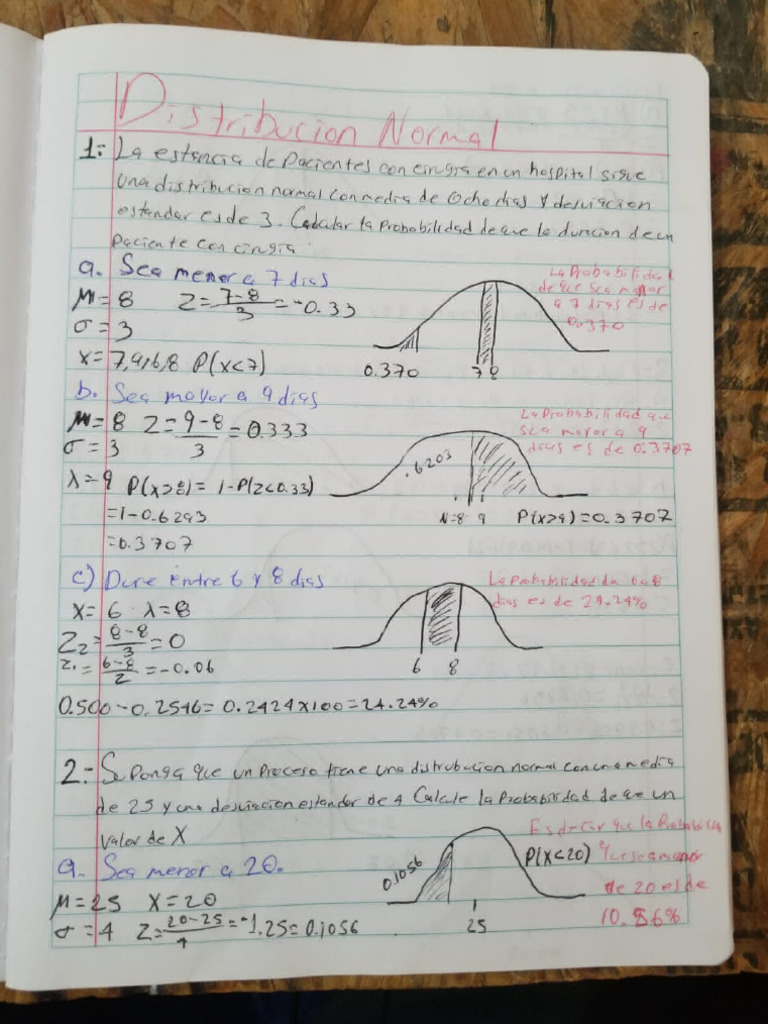 Distribucion Normal
1: La estancia de Pacientes con cirugia en un hospital sigue
una distribucion normal con media de Ocho dias y desviacion
estandar es de 3. Calcular la Probabilidad de que la duracion de un
Paciente con cirugia.
a. Sea menor a 7 dias
M=8 Z=7-8/3=-0.33
σ=3
x=7,9,6,8 P(x<7)
0.370 7 8
La Probabilidad
de que sea menor
a 7 dias es de
0.370
b. Sea mayor a 9 dias
M=8 Z=9-8/3=0.333
σ=3
λ=9 P(x>8)= 1-P(Z<0.33)
=1-0.6293
=0.3707
.6203
N=8 9 P(x>9)=0.3707
La Probabilidad que
sea mayor a 9
dias es de 0.3707
c) Dure entre 6 y 8 dias
x=6 λ=8
Z2=8-8/3=0
Z1=6-8/2=-0.06
0.500-0.2546=0.2424x100=24.24%
6 8
La Probabilidad da 6 a 8
dias es de 24.24%
2:- Suponga que un Proceso tiene una distrubucion normal con una media
de 25 y una desviacion estander de 4 Calcule la Probabilidad de que un
Valor de X
a. Sea menor a 20.
M=25 X=20
σ=4 Z=20-25/4=-1.25=0.1056
0.1056
25
P(X<20)
Es decir que la Probabilida
que sea menor
de 20 es de
10.56%